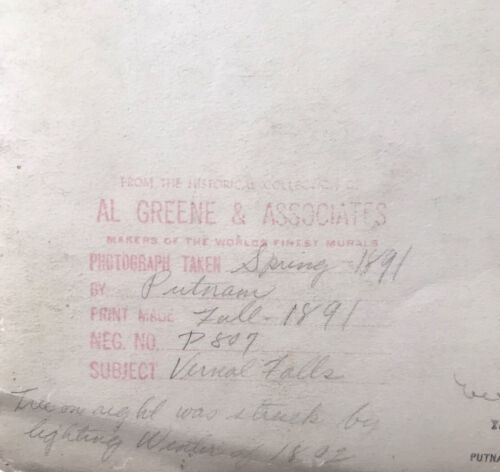 FROM THE HISTORICAL COLLECTION OF
AL GREENE & ASSOCIATES
MAKERS OF THE WORLDS FINEST MURALS
PHOTOGRAPH TAKEN Spring 1891
BY Putnam
PRINT MADE Fall - 1891
NEG. NO. P807
SUBJECT Vernal Falls
Tree on right was struck by
lighting Winter of 1892
PUTNA